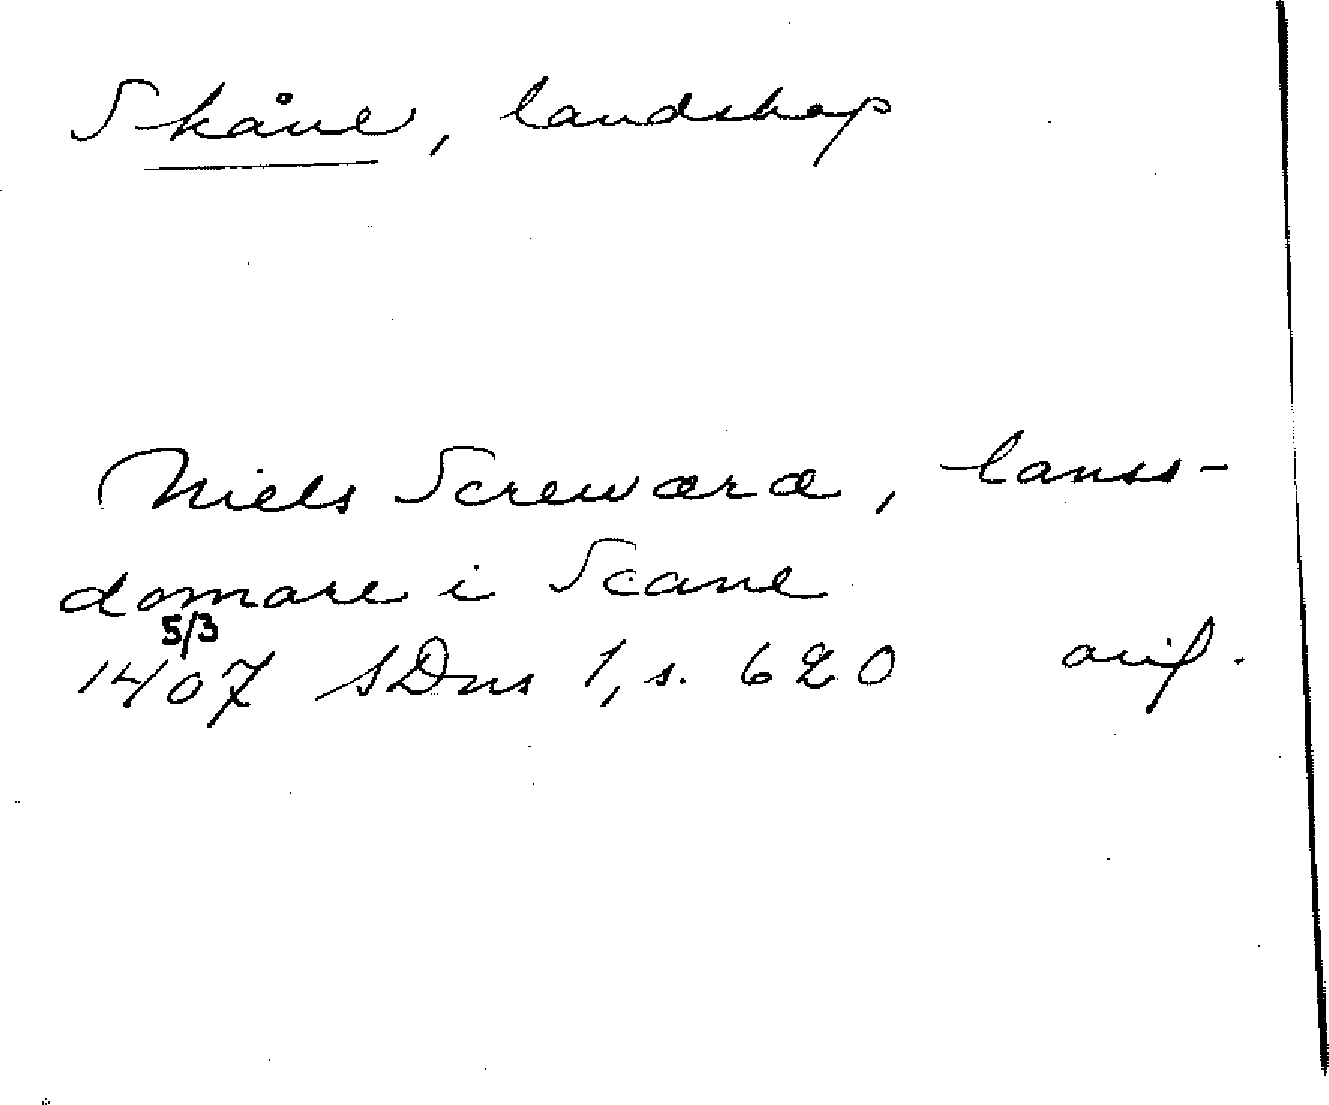 Skåne, landskap
Niels Screwæræ, lanss-
domare i Scane
5/3
1407 SDns 1, s. 620 orig.